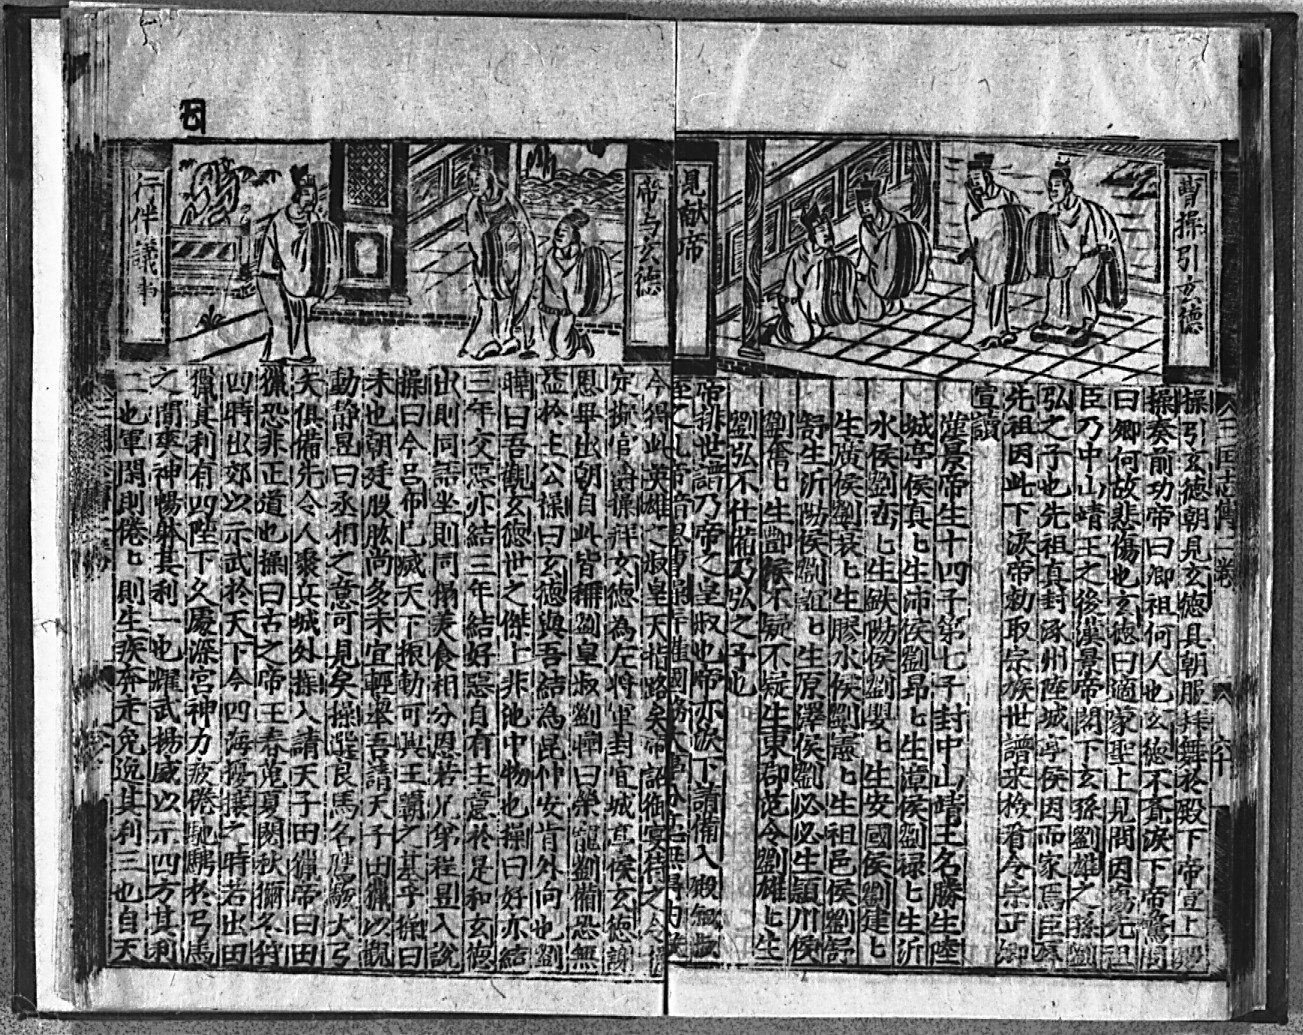 曹操引玄德
見献帝
三国志傳二卷
六十
操引玄德朝見玄德具朝服拜舞於殿下帝宣上殿
操奏前功帝曰卿祖何人也玄德不覺淚下帝驚問
曰卿何故悲傷也玄德曰適蒙聖上見問因傷先祖
臣乃中山靖王之後漢景帝閣下玄孫劉雄之孫劉
弘之子也先祖真封涿州陸城亭侯因而家焉臣
先祖因此下淚帝勅取宗族世譜來檢看令宗正卿
宣讀
漢景帝生十四子第七子封中山靖王名勝生陸
城亭侯真匕生沛侯劉昂匕生漳侯劉禄匕生沂
水侯劉恋匕生欽陽侯劉嬰匕生安國侯劉建匕
生廣侯劉哀匕生膠水侯劉憲匕生祖邑侯劉舒
舒生沂陽侯劉誼匕生原澤侯劉必必生穎川侯
劉 匕生 不疑不疑生東郡范令劉雄匕生
劉弘不仕備乃弘之子也
帝排世譜乃帝之皇叔也帝亦淚下請備入殿
之礼帝
帝与玄德
行伴議事
今得此英雄之叔皇天指路矣帝詔御宴待之令
定 官 操拜玄德為左將軍封宜城亭侯玄德謝
恩畢出朝自此皆稱劉皇叔劉曄曰榮寵劉備恐無
益於主公操曰玄德與吾結為昆仲安肯外向也劉
曄曰吾觀玄德世之傑士非池中物也操曰好亦結
三年交惡亦結三年結好惡自有主意於是和玄德
出則同語坐則同榻美食相分恩若兄弟程昱入說
操曰今呂布已滅天下振動可興王霸之基乎操曰
未也朝廷股肱尚多未宜輕舉吾請天子田獵以觀
動靜昱曰丞相之意可見矣操選良馬名鷹駿犬弓
矢俱備先令人聚兵城外操入請天子田獵帝曰田
獵恐非正道也操曰古之帝王春蒐夏閱秋獮冬狩
四時出郊以示武於天下今四海擾攘之時若出田
獵其利有四陛下久處深宮神力疲倦馳騁於弓馬
之間爽神暢射其利一也耀武揚威以示四方其利
二也軍閒則倦匕則生疾奔走免逸其利三也自天